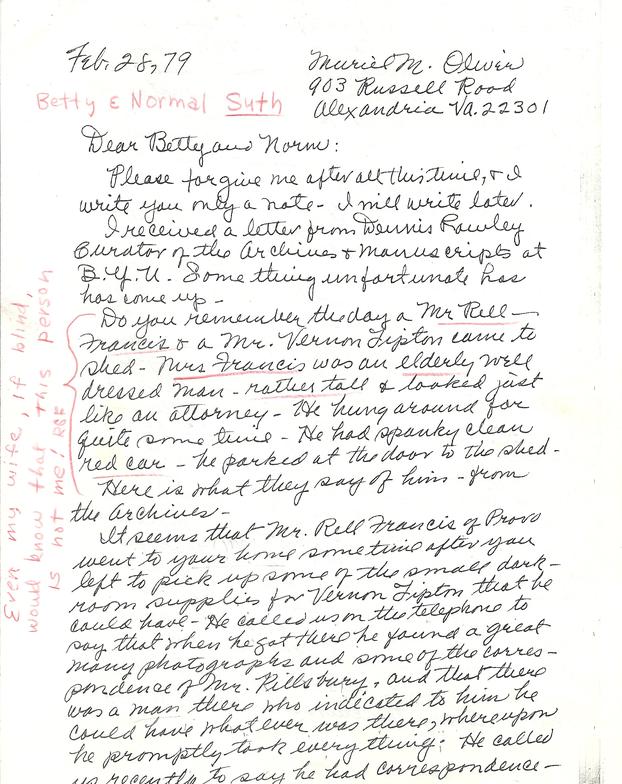 Feb. 28, 79
Muriel M. Oliver
903 Russell Road
Alexandria Va. 22301
Betty & Normal Suth
Dear Betty and Norm:
Please forgive me after all this time, & I
write you only a note - I will write later.
I received a letter from Dennis Rowley
Curator of the Archives & Manuscripts at
B.Y.U. Something unfortunate has
has come up -
Do you remember the day a Mr Rell
Francis & a Mr. Vernon Tipton came to
shed - Mrs Francis was an elderly well
dressed man - rather tall & looked just
like an attorney - He hung around for
quite some time - He had spanky clean
red car - he parked at the door to the shed -
Here is what they say of him - from
the Archives -
It seems that Mr. Rell Francis of Provo
went to your home sometime after you
left to pick up some of the small dark-
room supplies for Vernon Tipton that he
could have - He called us on the telephone to
say that when he got there he found a great
many photographs and some of the corres-
pondence of Mr. Pillsbury, and that there
was a man there who indicated to him he
could have what ever was there, whereupon
he promptly took everything. He called
us recently to say he had correspondence -
Even my wife, if blind,
would know that this person
is not me! RGF